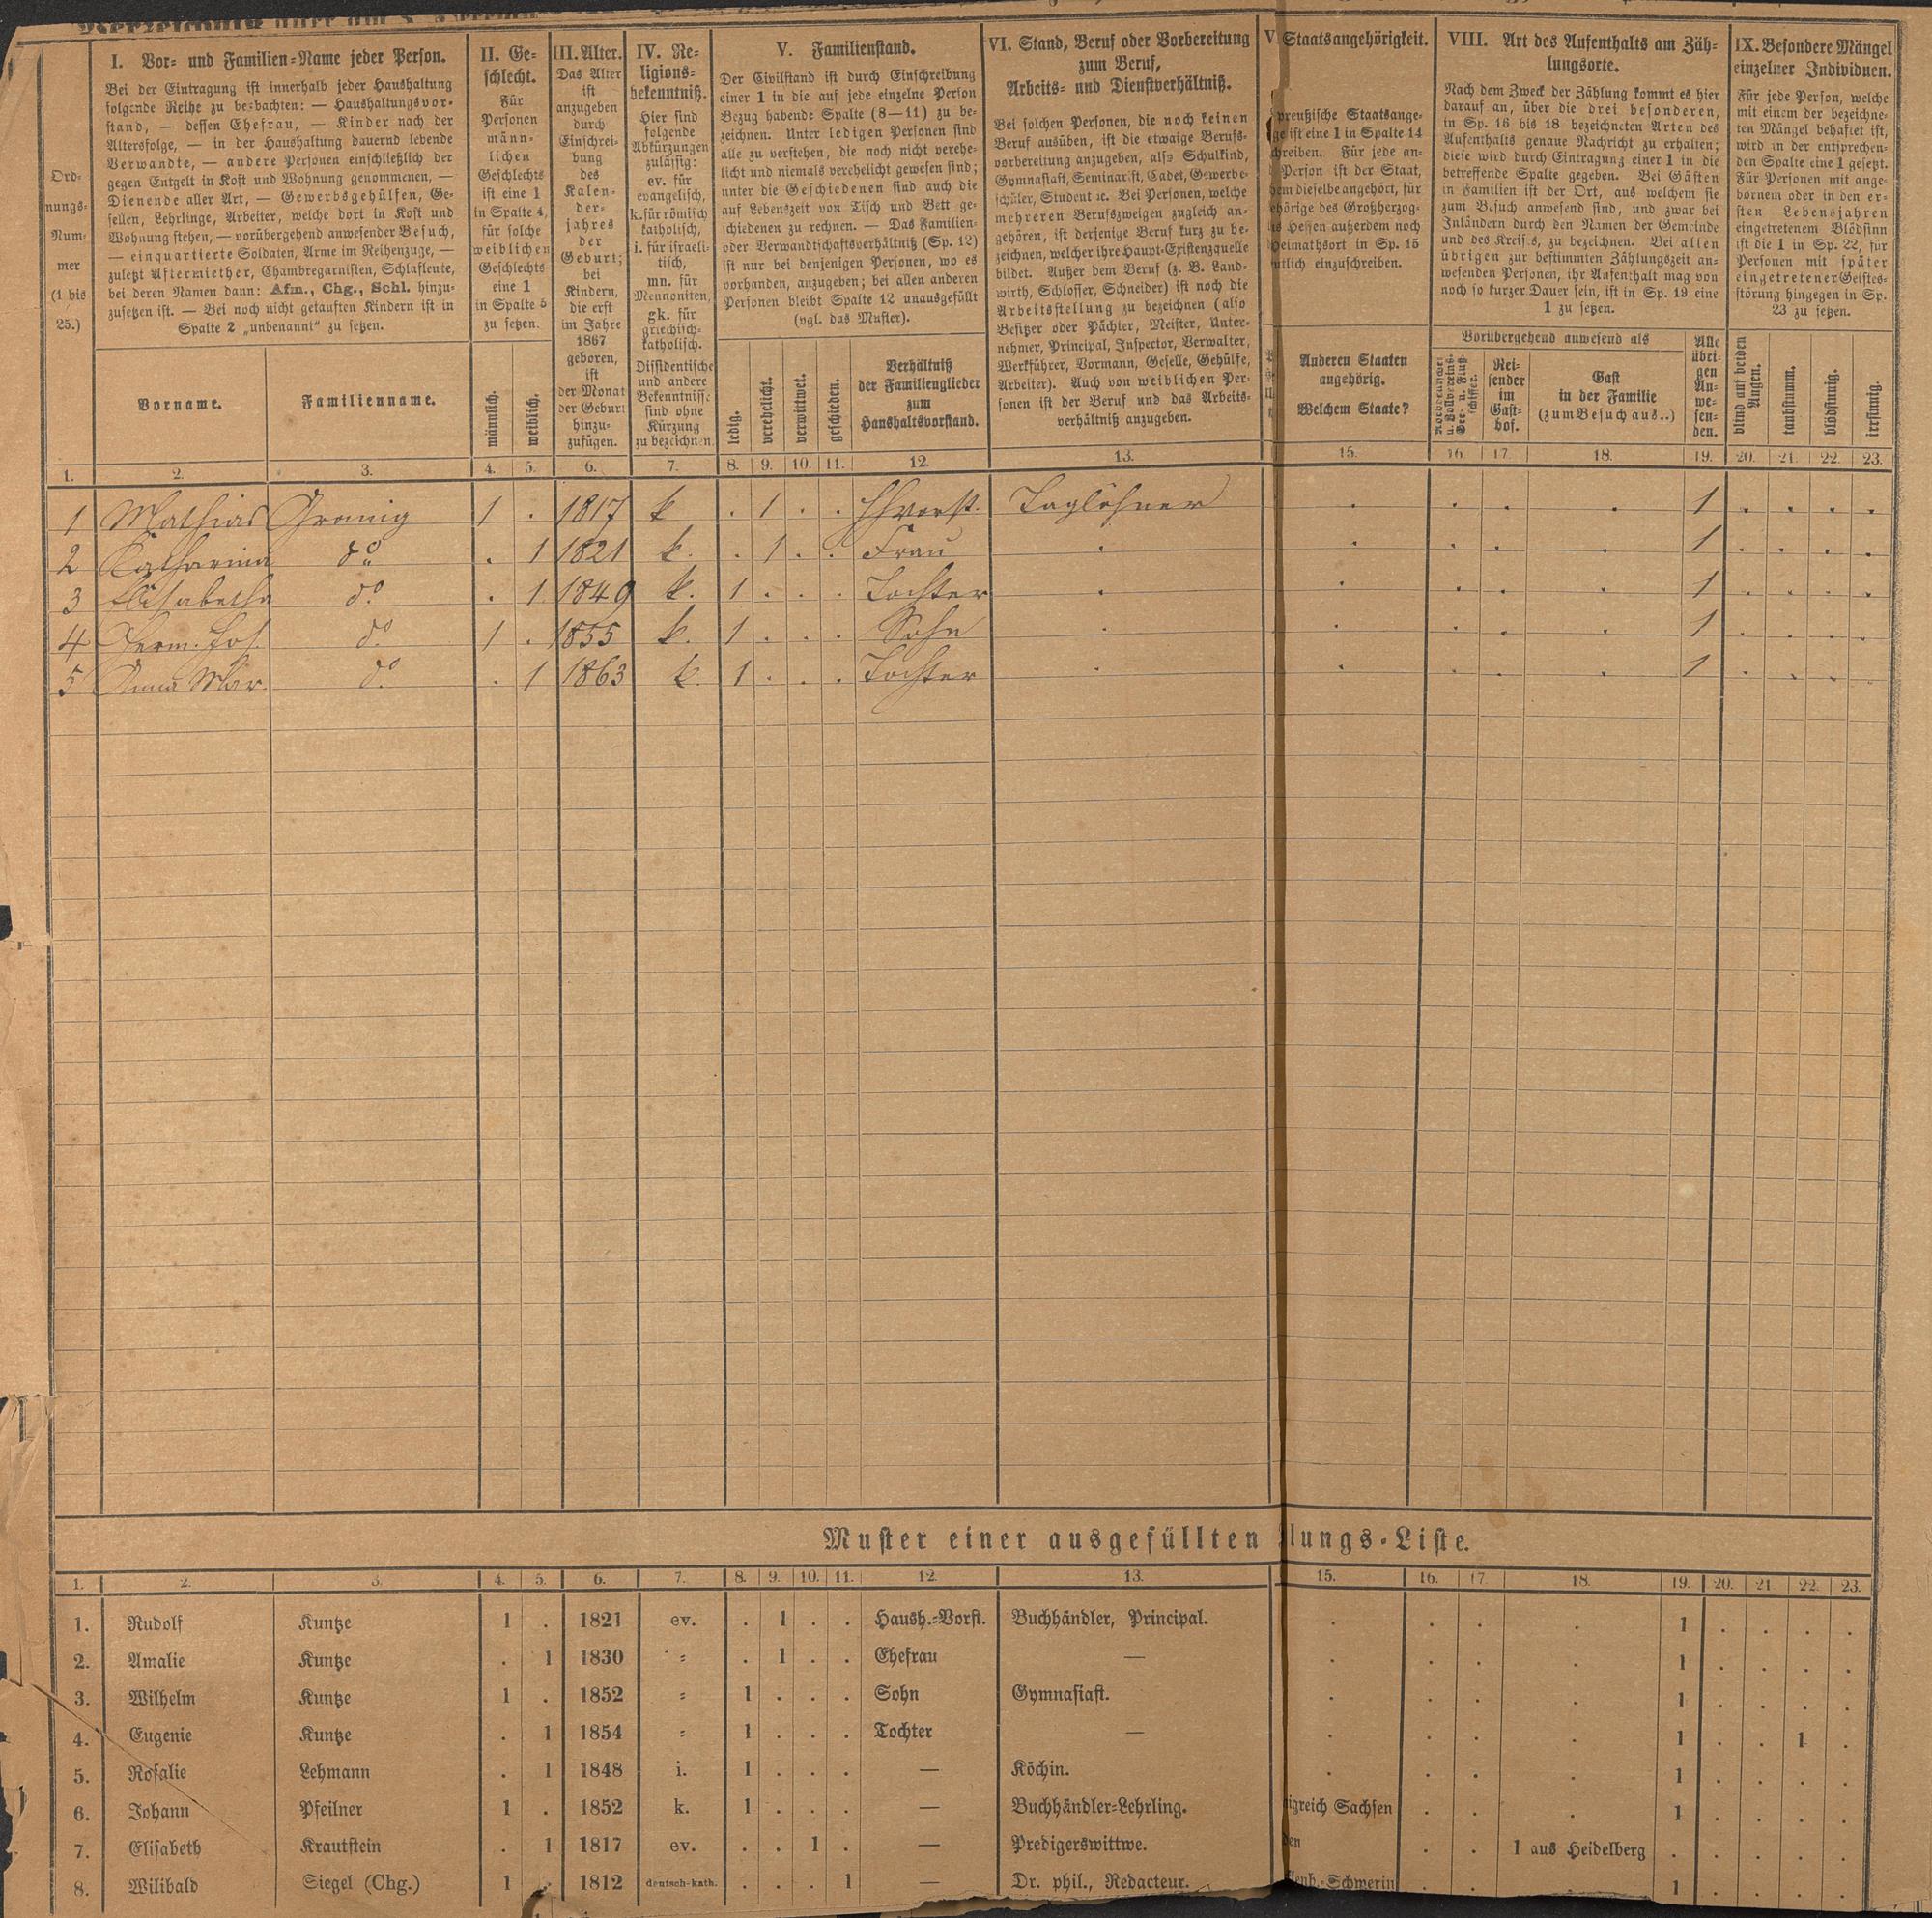 I. Vor- und Familien-Name jeder Person.
Bei der Eintragung ist innerhalb jeder Haushaltung
folgende Reihe zu beobachten: — Haushaltungsvor-
stand, — dessen Ehefrau, — Kinder nach der
Altersfolge, — in der Haushaltung dauernd lebende
Verwandte, — andere Personen einschließlich der
gegen Entgelt in Kost und Wohnung genommenen, —
Dienende aller Art, — Gewerbsgehülfen, Ge-
sellen, Lehrlinge, Arbeiter, welche dort in Kost und
Wohnung stehen, — vorübergehend anwesender Besuch,
— einquartierte Soldaten, Arme im Reihenzuge, —
zuletzt Aftermiether, Chambregarnisten, Schlafleute,
bei deren Namen dann: Afm., Chg., Schl. hinzu-
zusetzen ist. — Bei noch nicht getauften Kindern ist in
Spalte 2 „unbenannt“ zu setzen.
II. Ge-
schlecht.
Für
Personen
männ-
lichen
Geschlechts
ist eine 1
in Spalte 4,
für solche
weiblichen
Geschlechts
eine 1
in Spalte 5
zu setzen.
III. Alter.
Das Alter
ist
anzugeben
durch
Einschrei-
bung
des
Kalen-
der-
jahres
der
Geburt;
bei
Kindern,
die erst
im Jahre
1867
geboren,
ist
der Monat
der Geburt
hinzu-
zufügen.
IV. Re-
ligions-
bekenntniß.
Hier sind
folgende
Abkürzungen
zulässig:
ev. für
evangelisch,
k. für römisch
katholisch,
i. für israeli-
tisch,
mn. für
Mennoniten,
gk. für
griechisch-
katholisch.
Dissidentische
und andere
Bekenntnisse
sind ohne
Kürzung
zu bezeichnen.
V. Familienstand.
Der Civilstand ist durch Einschreibung
einer 1 in die auf jede einzelne Person
Bezug habende Spalte (8—11) zu be-
zeichnen. Unter ledigen Personen sind
alle zu verstehen, die noch nicht verehe-
licht und niemals verehelicht gewesen sind;
unter die Geschiedenen sind auch die
auf Lebenszeit von Tisch und Bett ge-
schiedenen zu rechnen. — Das Familien-
oder Verwandtschaftsverhältniß (Sp. 12)
ist nur bei denjenigen Personen, wo es
vorhanden, anzugeben; bei allen anderen
Personen bleibt Spalte 12 unausgefüllt
(vgl. das Muster).
VI. Stand, Beruf oder Vorbereitung
zum Beruf,
Arbeits- und Dienstverhältniß.
Bei solchen Personen, die noch keinen
Beruf ausüben, ist die etwaige Berufs-
vorbereitung anzugeben, also Schulkind,
Gymnasiast, Seminarist, Cadet, Gewerbe-
schüler, Student ꝛc. Bei Personen, welche
mehreren Berufszweigen zugleich an-
gehören, ist derjenige Beruf kurz zu be-
zeichnen, welcher ihre Haupt-Existenzquelle
bildet. Außer dem Beruf (z. B. Land-
wirth, Schlosser, Schneider) ist noch die
Arbeitsstellung zu bezeichnen (also
Besitzer oder Pächter, Meister, Unter-
nehmer, Principal, Inspector, Verwalter,
Werkführer, Vormann, Geselle, Gehülfe,
Arbeiter). Auch von weiblichen Per-
sonen ist der Beruf und das Arbeits-
verhältniß anzugeben.
V Staatsangehörigkeit.
preußische Staatsange-
ge ist eine 1 in Spalte 14
chreiben. Für jede an-
Person ist der Staat,
em dieselbe angehört, für
ehörige des Großherzog-
s Hessen außerdem noch
Heimathsort in Sp. 15
utlich einzuschreiben.
VIII. Art des Aufenthalts am Zäh-
lungsorte.
Nach dem Zweck der Zählung kommt es hier
darauf an, über die drei besonderen,
in Sp. 16 bis 18 bezeichneten Arten des
Aufenthalts genaue Nachricht zu erhalten;
diese wird durch Eintragung einer 1 in die
betreffende Spalte gegeben. Bei Gästen
in Familien ist der Ort, aus welchem sie
zum Besuch anwesend sind, und zwar bei
Inländern durch den Namen der Gemeinde
und des Kreises, zu bezeichnen. Bei allen
übrigen zur bestimmten Zählungszeit an-
wesenden Personen, ihr Aufenthalt mag von
noch so kurzer Dauer sein, ist in Sp. 19 eine
1 zu setzen.
IX. Besondere Mängel
einzelner Individuen.
Für jede Person, welche
mit einem der bezeichne-
ten Mängel behaftet ist,
wird in der entsprechen-
den Spalte eine 1 gesetzt.
Für Personen mit ange-
bornem oder in den er-
sten Lebensjahren
eingetretenem Blödsinn
ist die 1 in Sp. 22, für
Personen mit später
eingetretener Geistes-
störung hingegen in Sp.
23 zu setzen.
Ord-
nungs-
Num-
mer
(1 bis
25.)
Vorname.
Familienname.
männlich.
weiblich.
ledig.
verehelicht.
verwittwet.
geschieden.
Verhältniß
der Familienglieder
zum
Haushaltsvorstand.
Anderen Staaten
angehörig.
Welchem Staate?
Vorübergehend anwesend als
Rei-
sender
im
Gast-
hof.
Gast
in der Familie
(zum Besuch aus..)
Alle
übri-
gen
An-
we-
sen-
den.
blind auf beiden
Augen.
taubstumm.
blödsinnig.
irrsinnig.
1. 2. 3. 4. 5. 6. 7. 8. 9. 10. 11. 12. 13. 15. 16. 17. 18. 19. 20. 21. 22. 23.
1 Mathias 1 . 1817 k . 1 . . Hhvorst. Taglöhner . . . . 1 . . . .
2 Katharina do . 1 1821 k. . 1 . . Frau . . . . . 1 . . . .
3 Elisabetha do . 1 1849 k. 1 . . . Tochter . . . . . 1 . . . .
4 Herm. Jos. do 1 . 1855 k. 1 . . . Sohn . . . . . 1 . . . .
5 Anna Mar. do . 1 1863 k. 1 . . . Tochter . . . . . 1 . . . .
Muster einer ausgefüllten lungs-Liste.
1. 2. 3. 4. 5. 6. 7. 8. 9. 10. 11. 12. 13. 15. 16. 17. 18. 19. 20. 21 22. 23.
1. Rudolf Kuntze 1 . 1821 ev. . 1 . . Haush.-Vorst. Buchhändler, Principal. . . . . 1 . . . .
2. Amalie Kuntze . 1 1830 = . 1 . . Ehefrau — . . . . 1 . . . .
3. Wilhelm Kuntze 1 . 1852 = 1 . . . Sohn Gymnasiast. . . . . 1 . . . .
4. Eugenie Kuntze . 1 1854 = 1 . . . Tochter — . . . . 1 . . 1 .
5. Rosalie Lehmann . 1 1848 i. 1 . . . — Köchin. . . . . 1 . . . .
6. Johann Pfeilner 1 . 1852 k. 1 . . . — Buchhändler-Lehrling. igreich Sachsen . . . 1 . . . .
7. Elisabeth Krautstein . 1 1817 ev. . . 1 . — Predigerswittwe. den . . 1 aus Heidelberg . . . . .
8. Wilibald Siegel (Chg.) 1 . 1812 deutsch-kath. . . . 1 — Dr. phil., Redacteur. lenb.-Schwerin . . . 1 . . . .